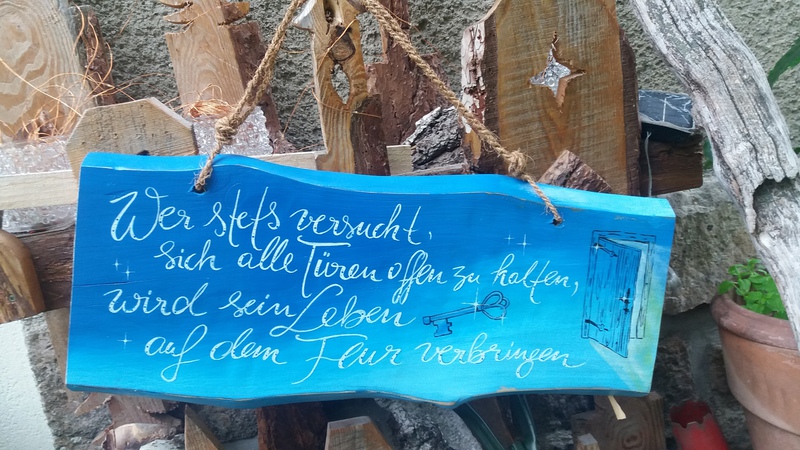 Wer stets versucht,
sich alle Türen offen zu halten,
wird sein Leben
auf dem Flur verbringen